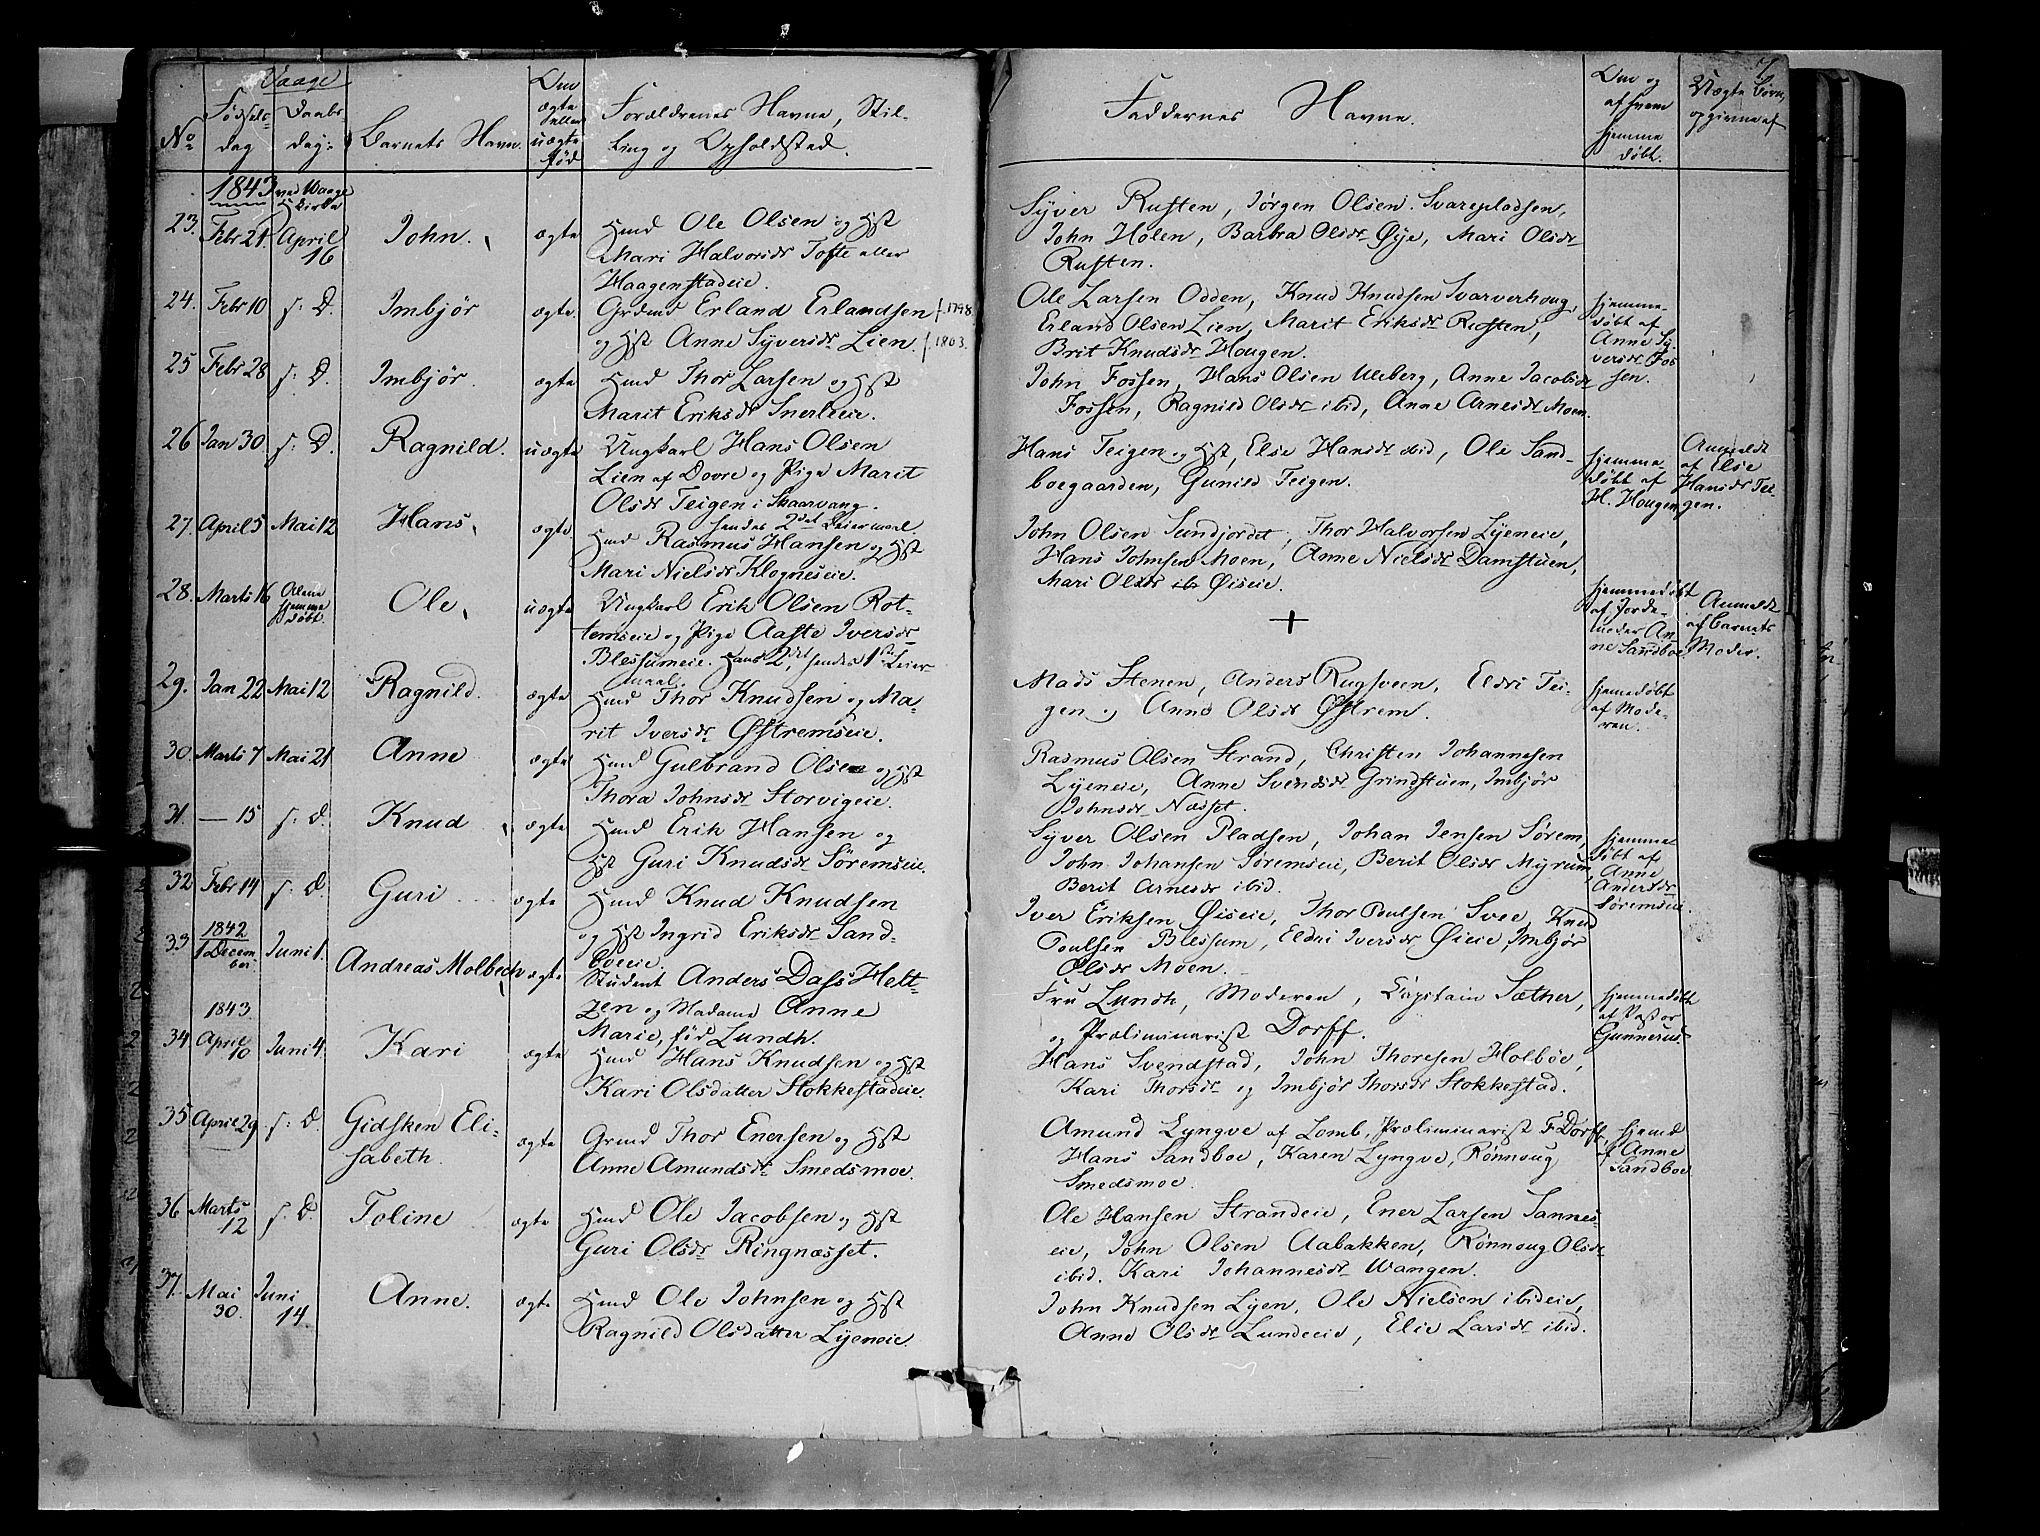 Vaage
No
Fødsels dag
Daabs dag
Barnets Navn
Om ægte eller uægte fød
Forældrenes Navne, Stil-
ling og Opholdsted.
Faddernes Navne.
Om og af hvem hjemme døbt.
Uægte Børn, opgivne af
7
1843 ved Waage Kirke
23. Febr 21. April 16 John. ægte Hmd Ole Olsen og Hst
Mari Halvorsdr Tofte eller
Haagenstadeie.
Syver Rusten, Jørgen Olsen Svarepladsen,
John Holen, Barbra Olsdr Øye, Mari Olsdr
Rusten.
24. Febr 10 s. D. Imbjør ægte. Grdmd Erland Erlandsen f. 1798.
og Hst Anne Syversdr Lien. f 1803.
Ole Larsen Odden, Knud Knudsen Svarverhoug,
Erland Olsen Lien, Marit Eriksdr Rusten,
Brit Knudsdr Hougen.
hjemme-
døbt af
Anne Sy-
versdr Fos-
sen.
25 Febr 28 s. D. Imbjør. ægte Hmd Thor Larsen og Hst
Marit Eriksdr Snerleeie.
John Fossen, Hans Olsen Uleberg, Anne Jacobsdr
Fossen, Ragnild Olsdr ibid, Anne Arnesdr Moen.
26 Jan 30 s. D. Ragnild. uægte Ungkarl Hans Olsen
Lien af Dovre og Pige Marit
Olsdr Teigen i Skaarvang.
hendes 2det Leiermaal
Hans Teigen og Hst, Elie Hansdr ibid, Ole Sand-
boegaarden, Gunild Teigen.
hjemme-
døbt af
H. Hougen
Anmeldt
af Elsie
Hansdr Tei-
gen.
27. April 5 Mai 12 Hans ægte Hmd Rasmus Hansen og Hst
Mari Nielsdr Klogneseie.
John Olsen Sundjordet, Thor Halvorsen Lyeneie,
Hans Johnsen Moen, Anne Nielsdr Damstuen,
Mari Olsdr Øiseie.
28. Marts 16 Alene hjemme døbt. Ole uægte Ungkarl Erik Olsen Rot-
temseie og Pige Aaste Iversdr
Blessumeie. Hans 2det, hendes 1ste Leier-
maal.
+
hjemmedøbt
af Jorde-
moder An-
ne Sandboe
Anmeldt
af Barnets
Moder.
29. Jan 22 Mai 12 Ragnild. ægte Hmd Thor Knudsen og Ma-
rit Iversdr Østremseie.
Mads Stenen, Anders Rugsveen, Eldri Tei-
gen og Anne Olsdr Østrem.
hjemedøbt
af Mode-
ren.
30. Marts 7 Mai 21 Anne ægte Hmd Gulbrand Olsen og Hst
Thora Johnsdr Storvigeie.
Rasmus Olsen Strand, Christen Johannesen
Lyeneie, Anne Svendsdr Grindstuen, Imbjør
Johnsdr Næsset.
31. — 15 s. D. Knud ægte Hmd Erik Hansen og
Hst Guri Knudsdr Søremseie.
Syver Olsen Pladsen, Johan Jensen Sørem,
John Johansen Søremseie, Berit Olsdr Myrum,
Berit Arnesdr ibid.
hjemme
døbt af
Anne
Andersdr
Søremseie.
32 Febr 14 s. D. Guri ægte Hmd Knud Knudsen
og Hst Ingrid Eriksdr Sand-
boeeie.
Iver Eriksen Øiseie, Thor Poulsen Svee, Knud
Poulsen Blessum, Eldri Iversdr Øieie, Imbjør
Olsdr Moen.
33 1842 1 Decem-ber Juni 1. Andreas Molbech ægte Student Anders Dass Helt-
zen og Madame Anne
Marie, fød Lundh.
Fru Lundh, Moderen, Captain Sæther,
og Præliminarist Dorff.
hjemmedøbt
af Pastor
Gunnerus
1843
34 April 10 Juni 4. Kari ægte Hmd Hans Knudsen og Hst
Kari Olsdatter Stokkestadeie.
Hans Svendstad, John Thoresen Holboe,
Kari Thorsdr og Imbjør Thorsdr Stokkestad.
35 April 29 s. D. Gidsken Eli-
sabeth. ægte Grmd Thor Enersen og Hst
Anne Amundsdr Smedsmoe.
Amund Lyngve af Lomb, Præliminarist F. Dorff,
Hans Sandboe, Karen Lyngve, Rønnoug
Smedsmoe.
hjemd
af Anne
Sandboe
36 Marts 12 s. D. Toline ægte Hmd Ole Jacobsen og Hst
Guri Olsdr Ringnæsset.
Ole Hansen Strandeie, Ener Larsen Sannes-
eie, John Olsen Aabakken, Rønnoug Olsdr
ibid. Kari Johannesdr Wangen.
37. Mai 30. Juni 14. Anne. ægte Hmd Ole Johnsen og Hst
Ragnild Olsdatter Lyeneie.
John Knudsen Lyen, Ole Nielsen ibideie,
Anne Olsdr Lundeeie, Elie Larsdr ibid.